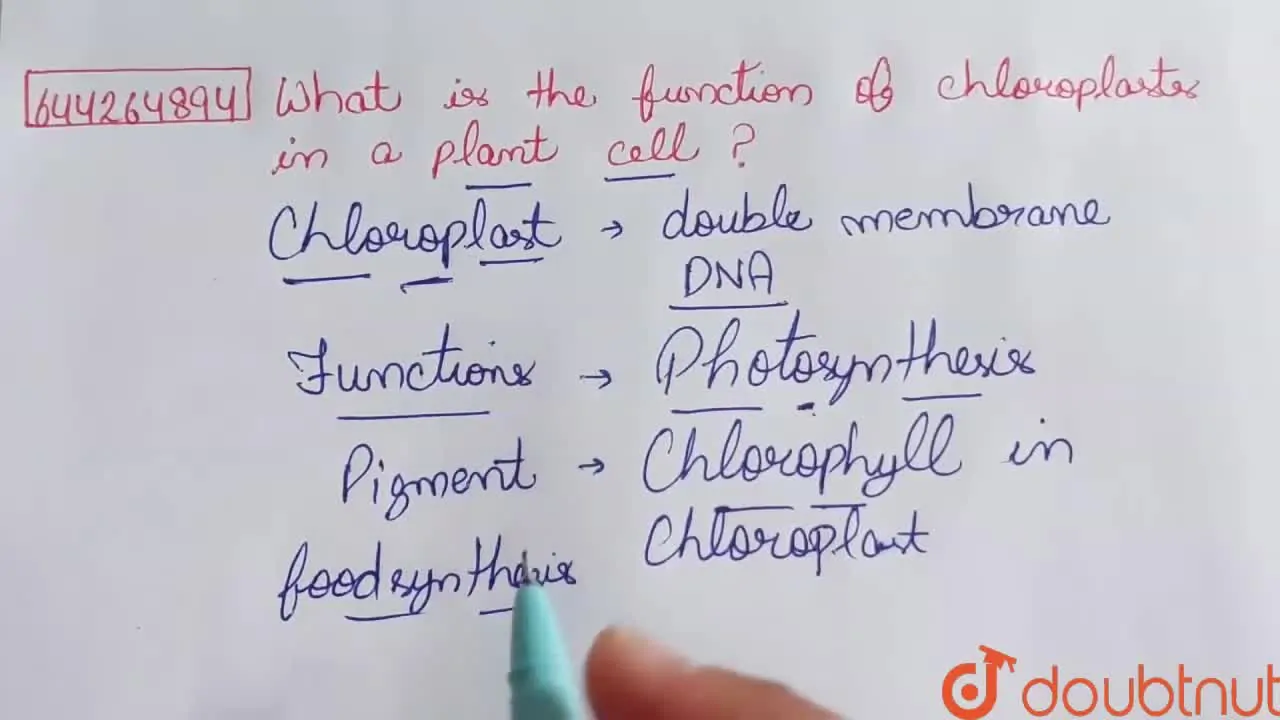 644264894 What is the function of chloroplasts
in a plant cell ?
Chloroplast → double membrane
DNA
Functions → Photosynthesis
Pigment → Chlorophyll in
Chloroplast
food synthesis
doubtnut